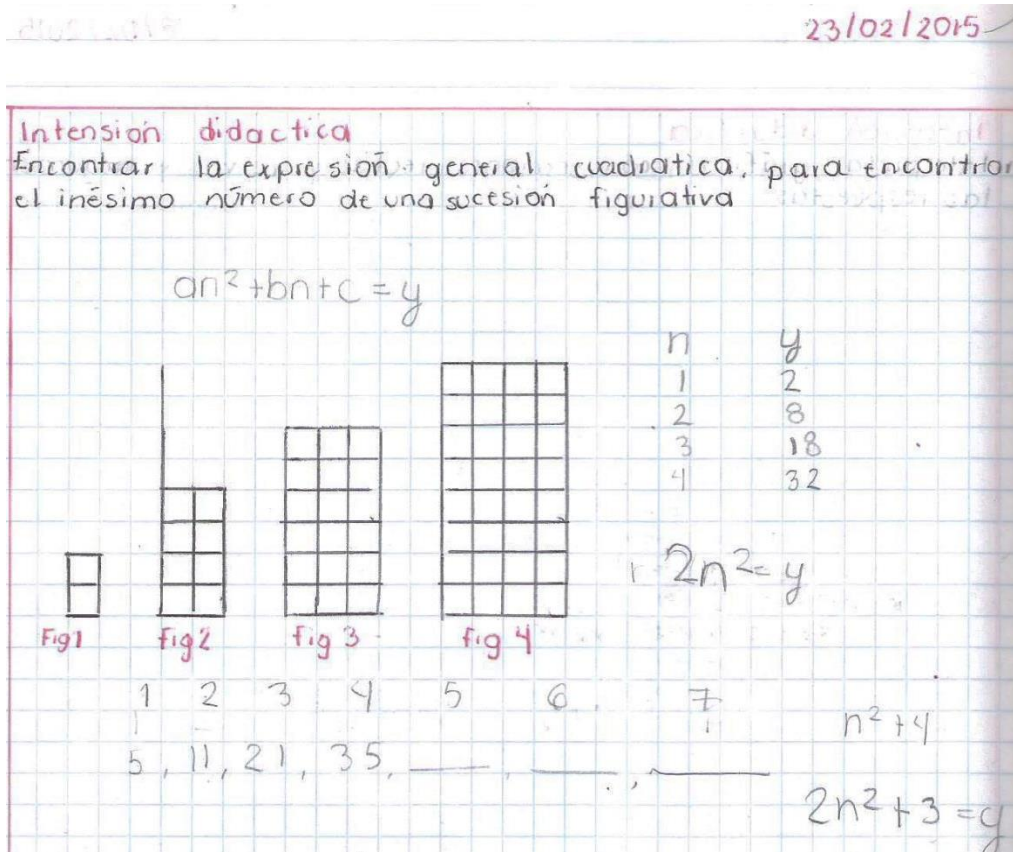 23/02/2015
Intension didactica
Encontrar la expresión general cuadratica, para encontrar
el inésimo número de una sucesión figurativa
an²+bn+c=y
n y
1 2
2 8
3 18
4 32
2n²=y
Fig1 fig2 fig 3 fig 4
1 2 3 4 5 6 7
5, 11, 21, 35, ____, ____, ____
n²+4
2n²+3=y